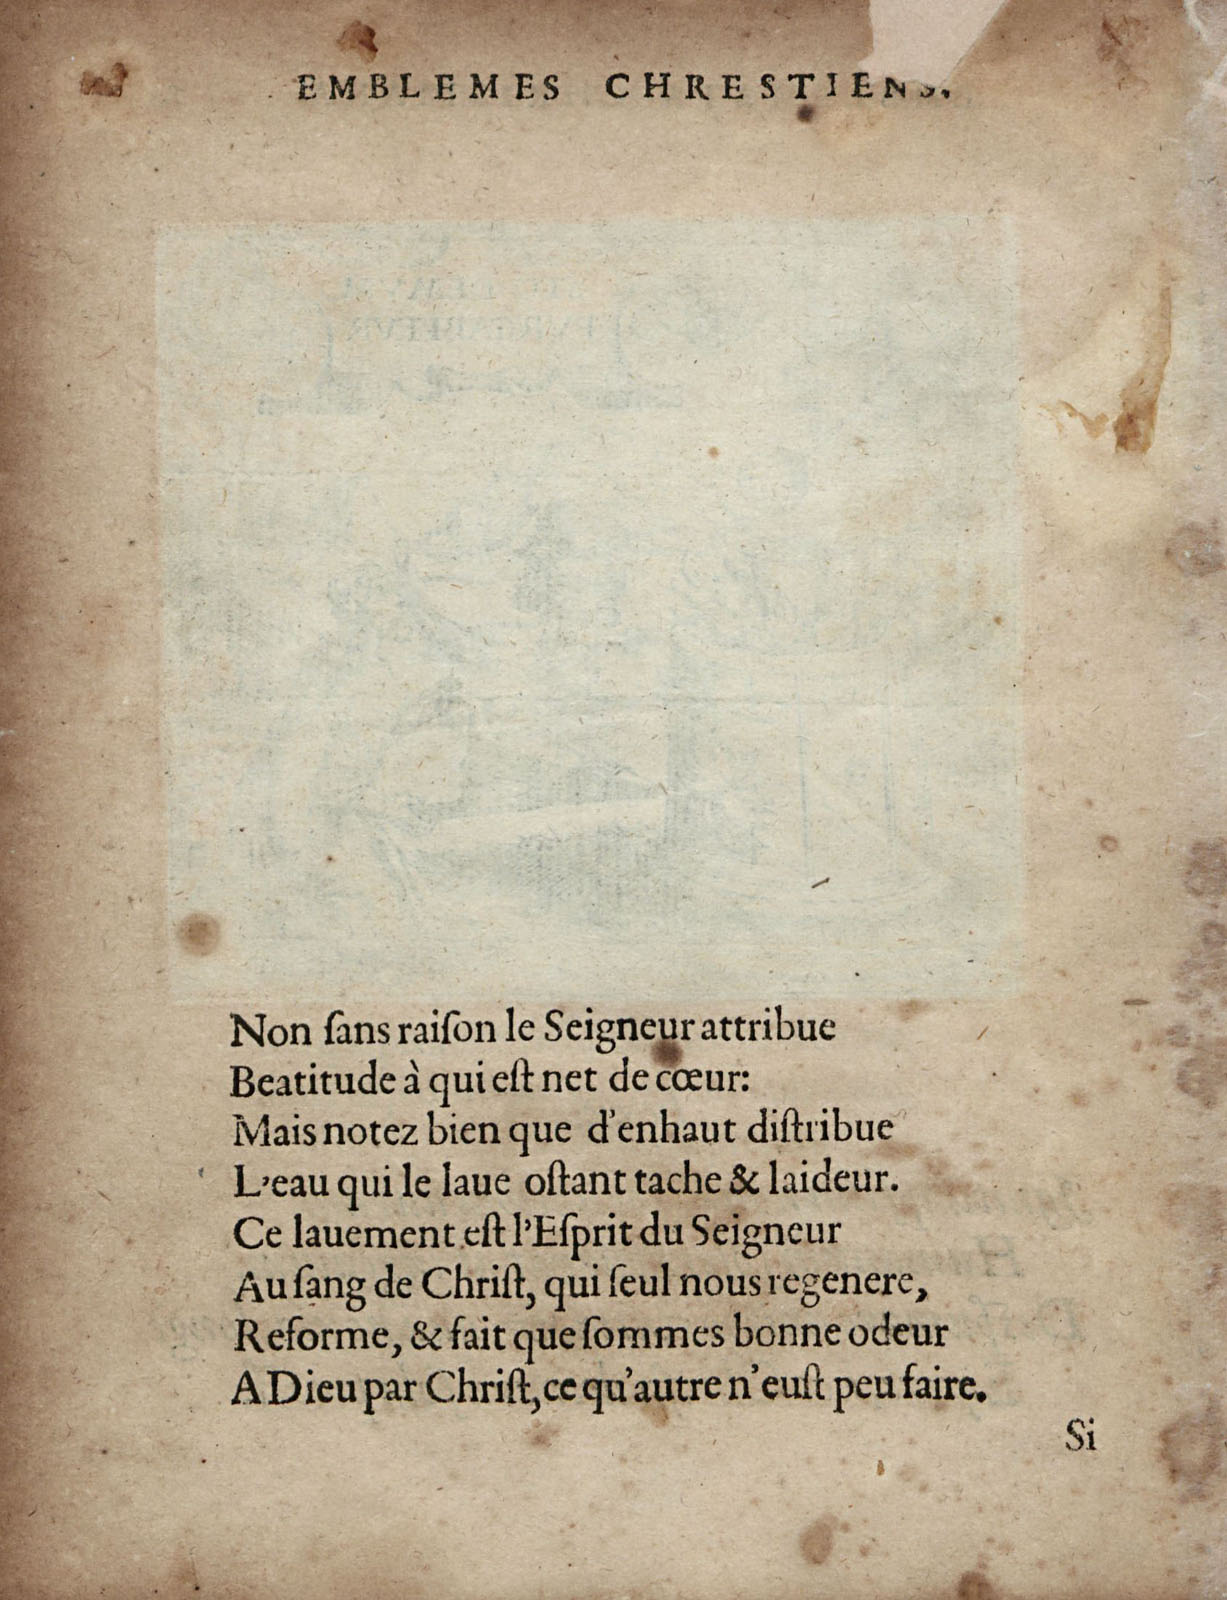 EMBLEMES CHRESTIENS.
Non ſans raiſon le Seigneur attribue
Beatitude à qui eſt net de cœur:
Mais notez bien que d'enhaut diſtribue
L'eau qui le laue oſtant tache & laideur.
Ce lauement eſt l'Eſprit du Seigneur
Au ſang de Chriſt, qui ſeul nous regenere,
Reforme, & fait que ſommes bonne odeur
A Dieu par Chriſt, ce qu'autre n'euſt peu faire.
Si